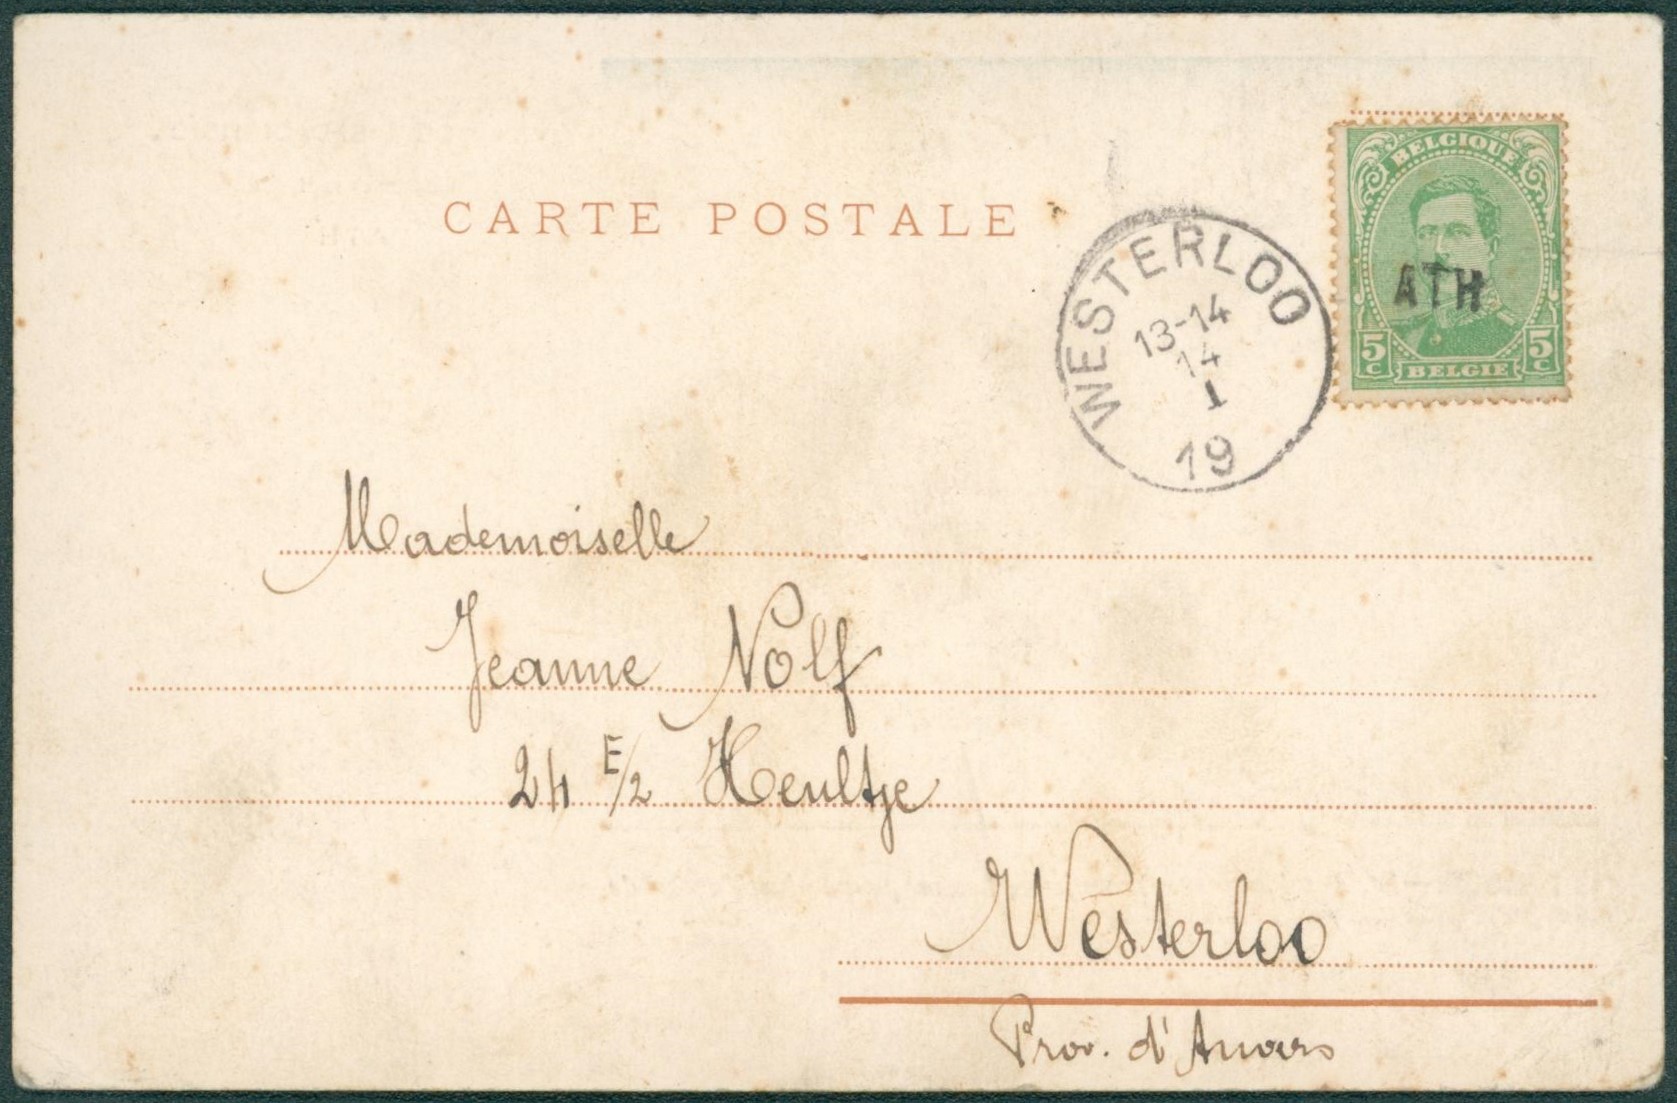 CARTE POSTALE
BELGIQUE
ATH
5c 5c
BELGIE
WESTERLOO
13-14
14
1
19
Mademoiselle
Jeanne Nolf
24 E/2 Heultje
Westerloo
Prov. d'Anvers